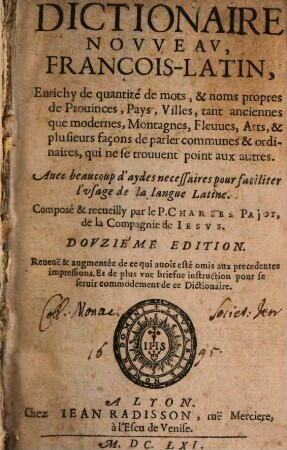 DICTIONAIRE
NOVVEAV,
FRANCOIS-LATIN,
Enrichy de quantité de mots, & noms propres
de Prouinces, Pays, Villes, tant anciennes
que modernes, Montagnes, Fleuues, Arts, &
plusieurs façons de parler communes & ordi-
naires, qui ne se trouuent point aux autres.
Auec beaucoup d'aydes necessaires pour faciliter
l'vsage de la langue Latine.
Composé & recueilly par le P. CHARLES PAJOT,
de la Compagnie de IESVS.
DOVZIÉME EDITION.
Reueuë & augmentée de ce qui auoit esté omis aux precedentes
impressions. Et de plus vne briefue instruction pour se
seruir commodement de ce Dictionaire.
Coll. Monac. Societ. Iesu
16 95.
IHS
A LYON.
Chez IEAN RADISSON, ruë Merciere,
à l'Escu de Venise.
M. DC. LXI.